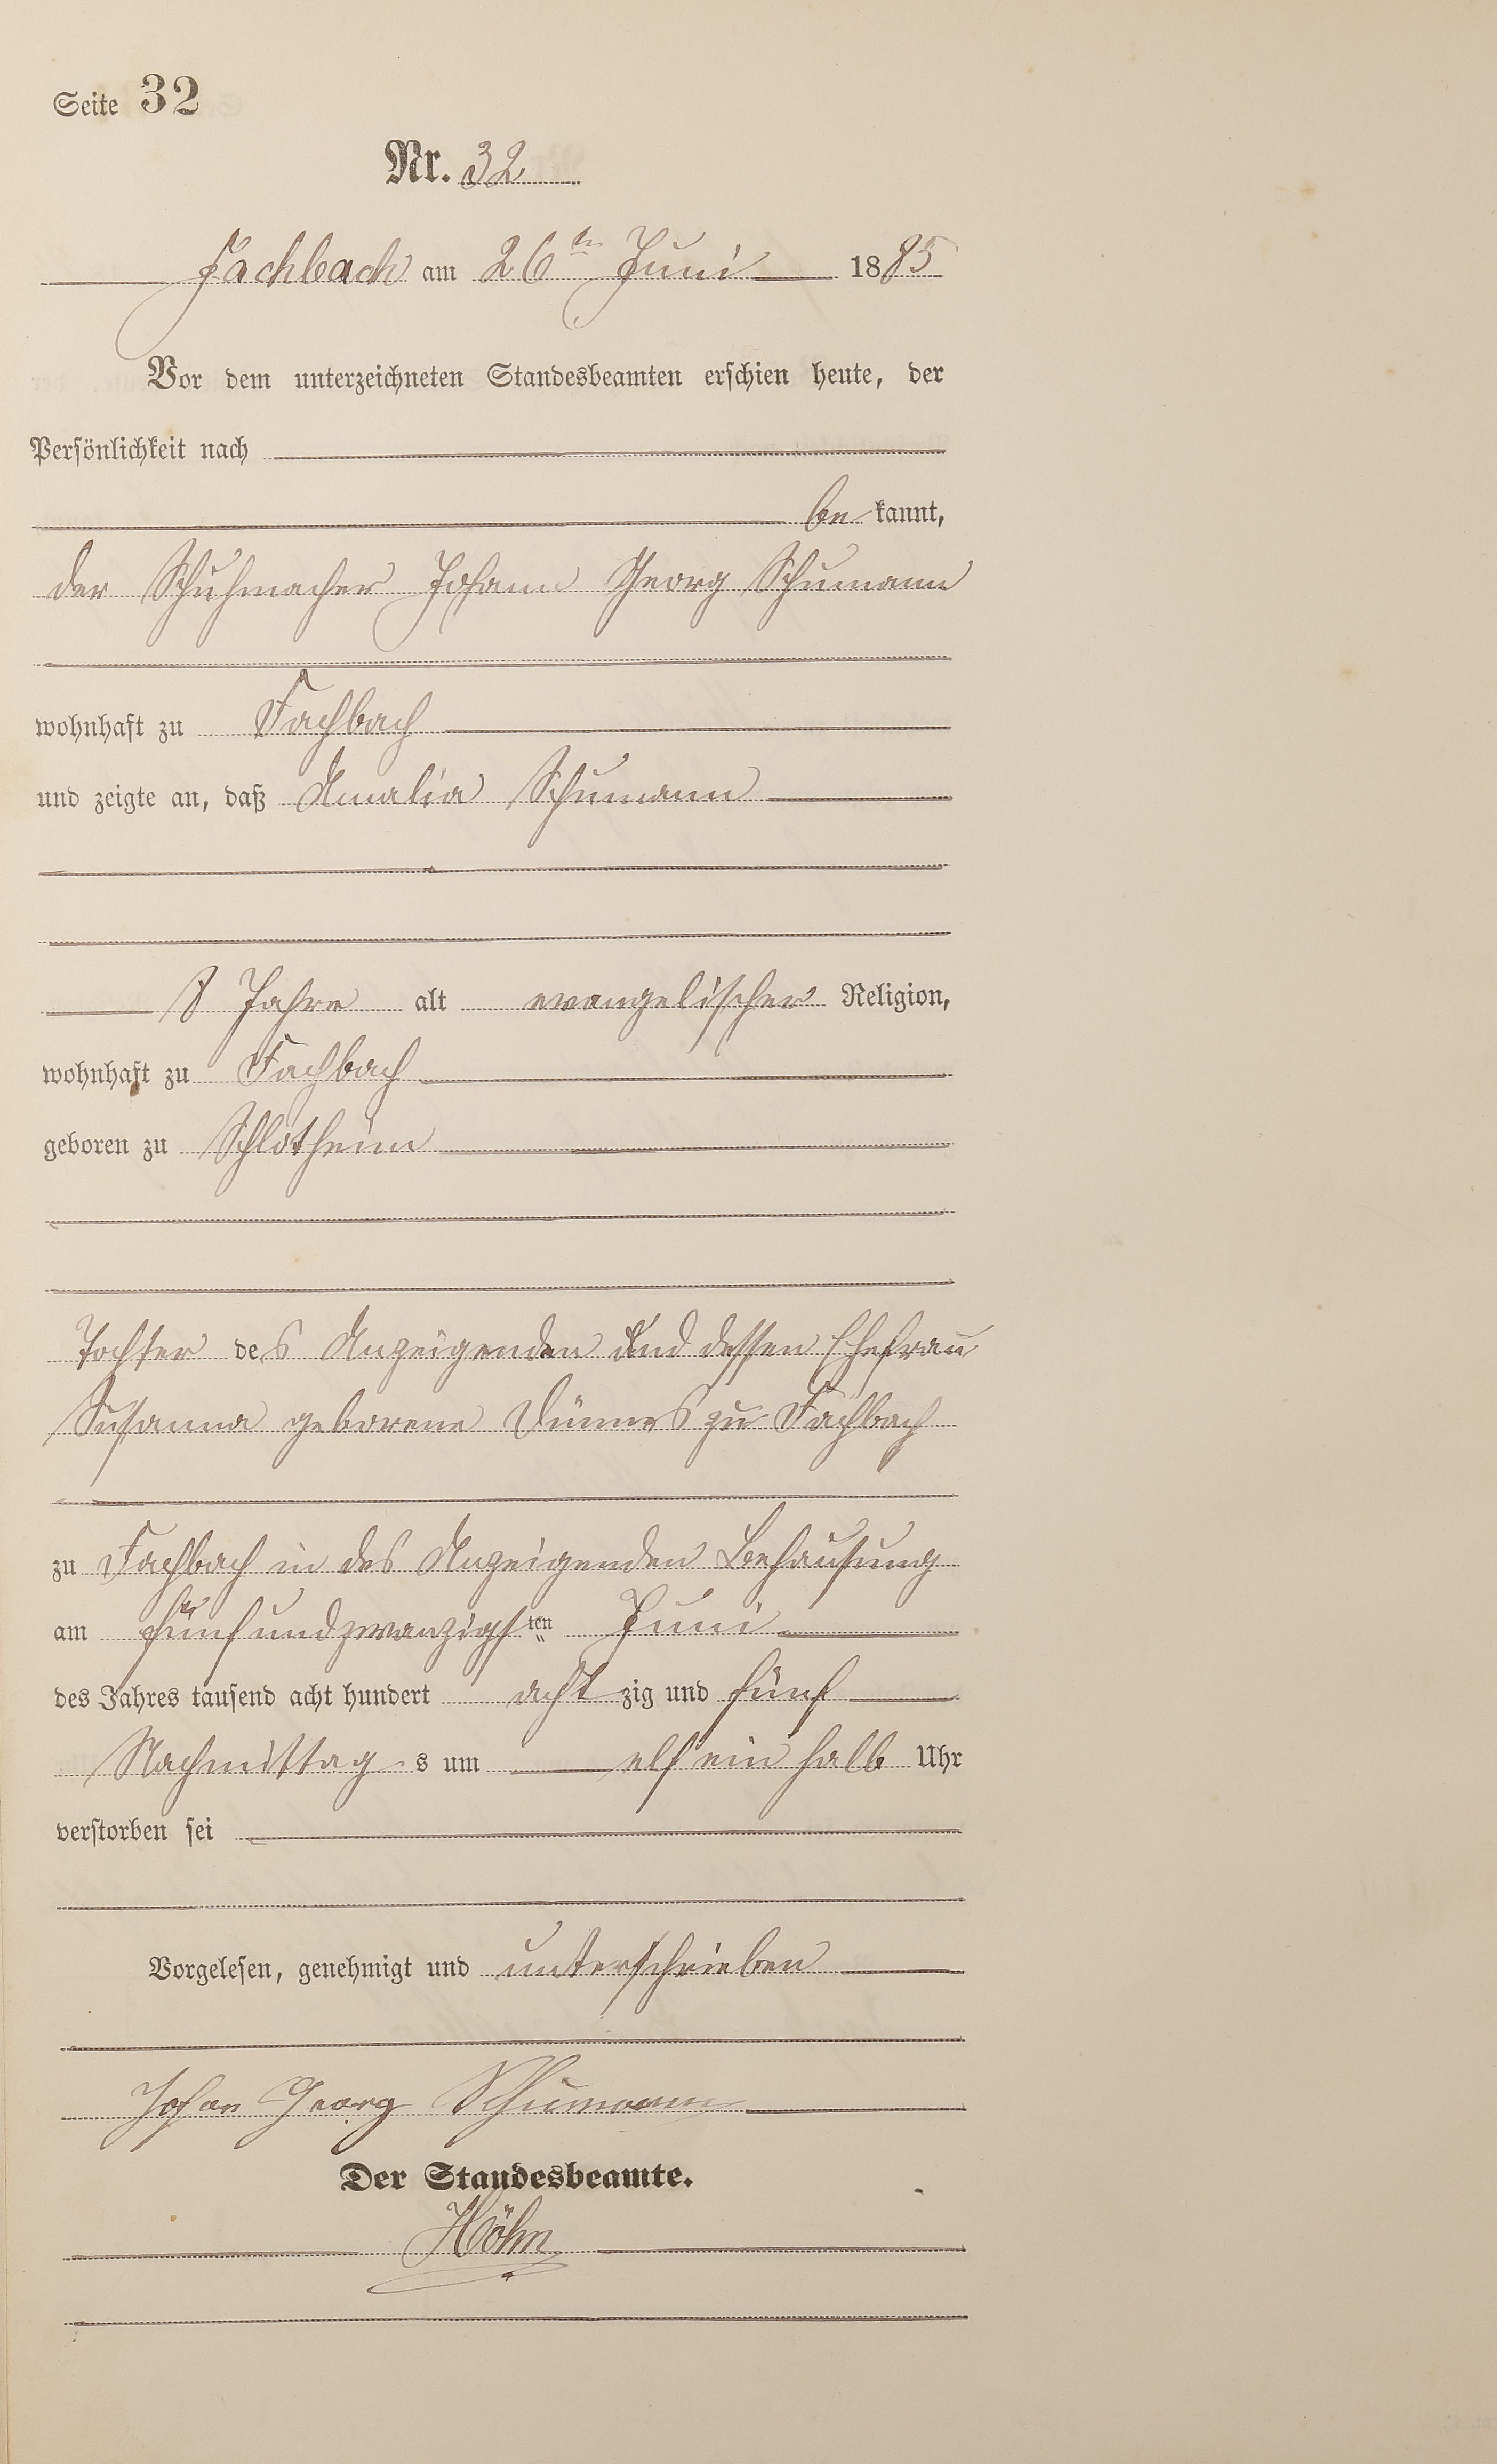 Seite 32
Nr. 32
Fachbach am 26ten Juni 1885
Vor dem unterzeichneten Standesbeamten erschien heute, der
Persönlichkeit nach
be kannt,
der Schuhmacher Johann Georg Schumann
wohnhaft zu Fachbach
und zeigte an, daß Amalia Schumann
8 Jahre alt evangelischer Religion,
wohnhaft zu Fachbach
geboren zu Schlotheim
Tochter des Anzeigenden und dessen Ehefrau
Susanna geborene zu Fachbach
zu Fachbach in des Anzeigenden Behausung
am fünfundzwanzigsten Juni
des Jahres tausend acht hundert acht zig und fünf
Nachmittag s um elf ein halb Uhr
verstorben sei
Vorgelesen, genehmigt und unterschrieben
Johan Georg Schumann
Der Standesbeamte.
Höhn